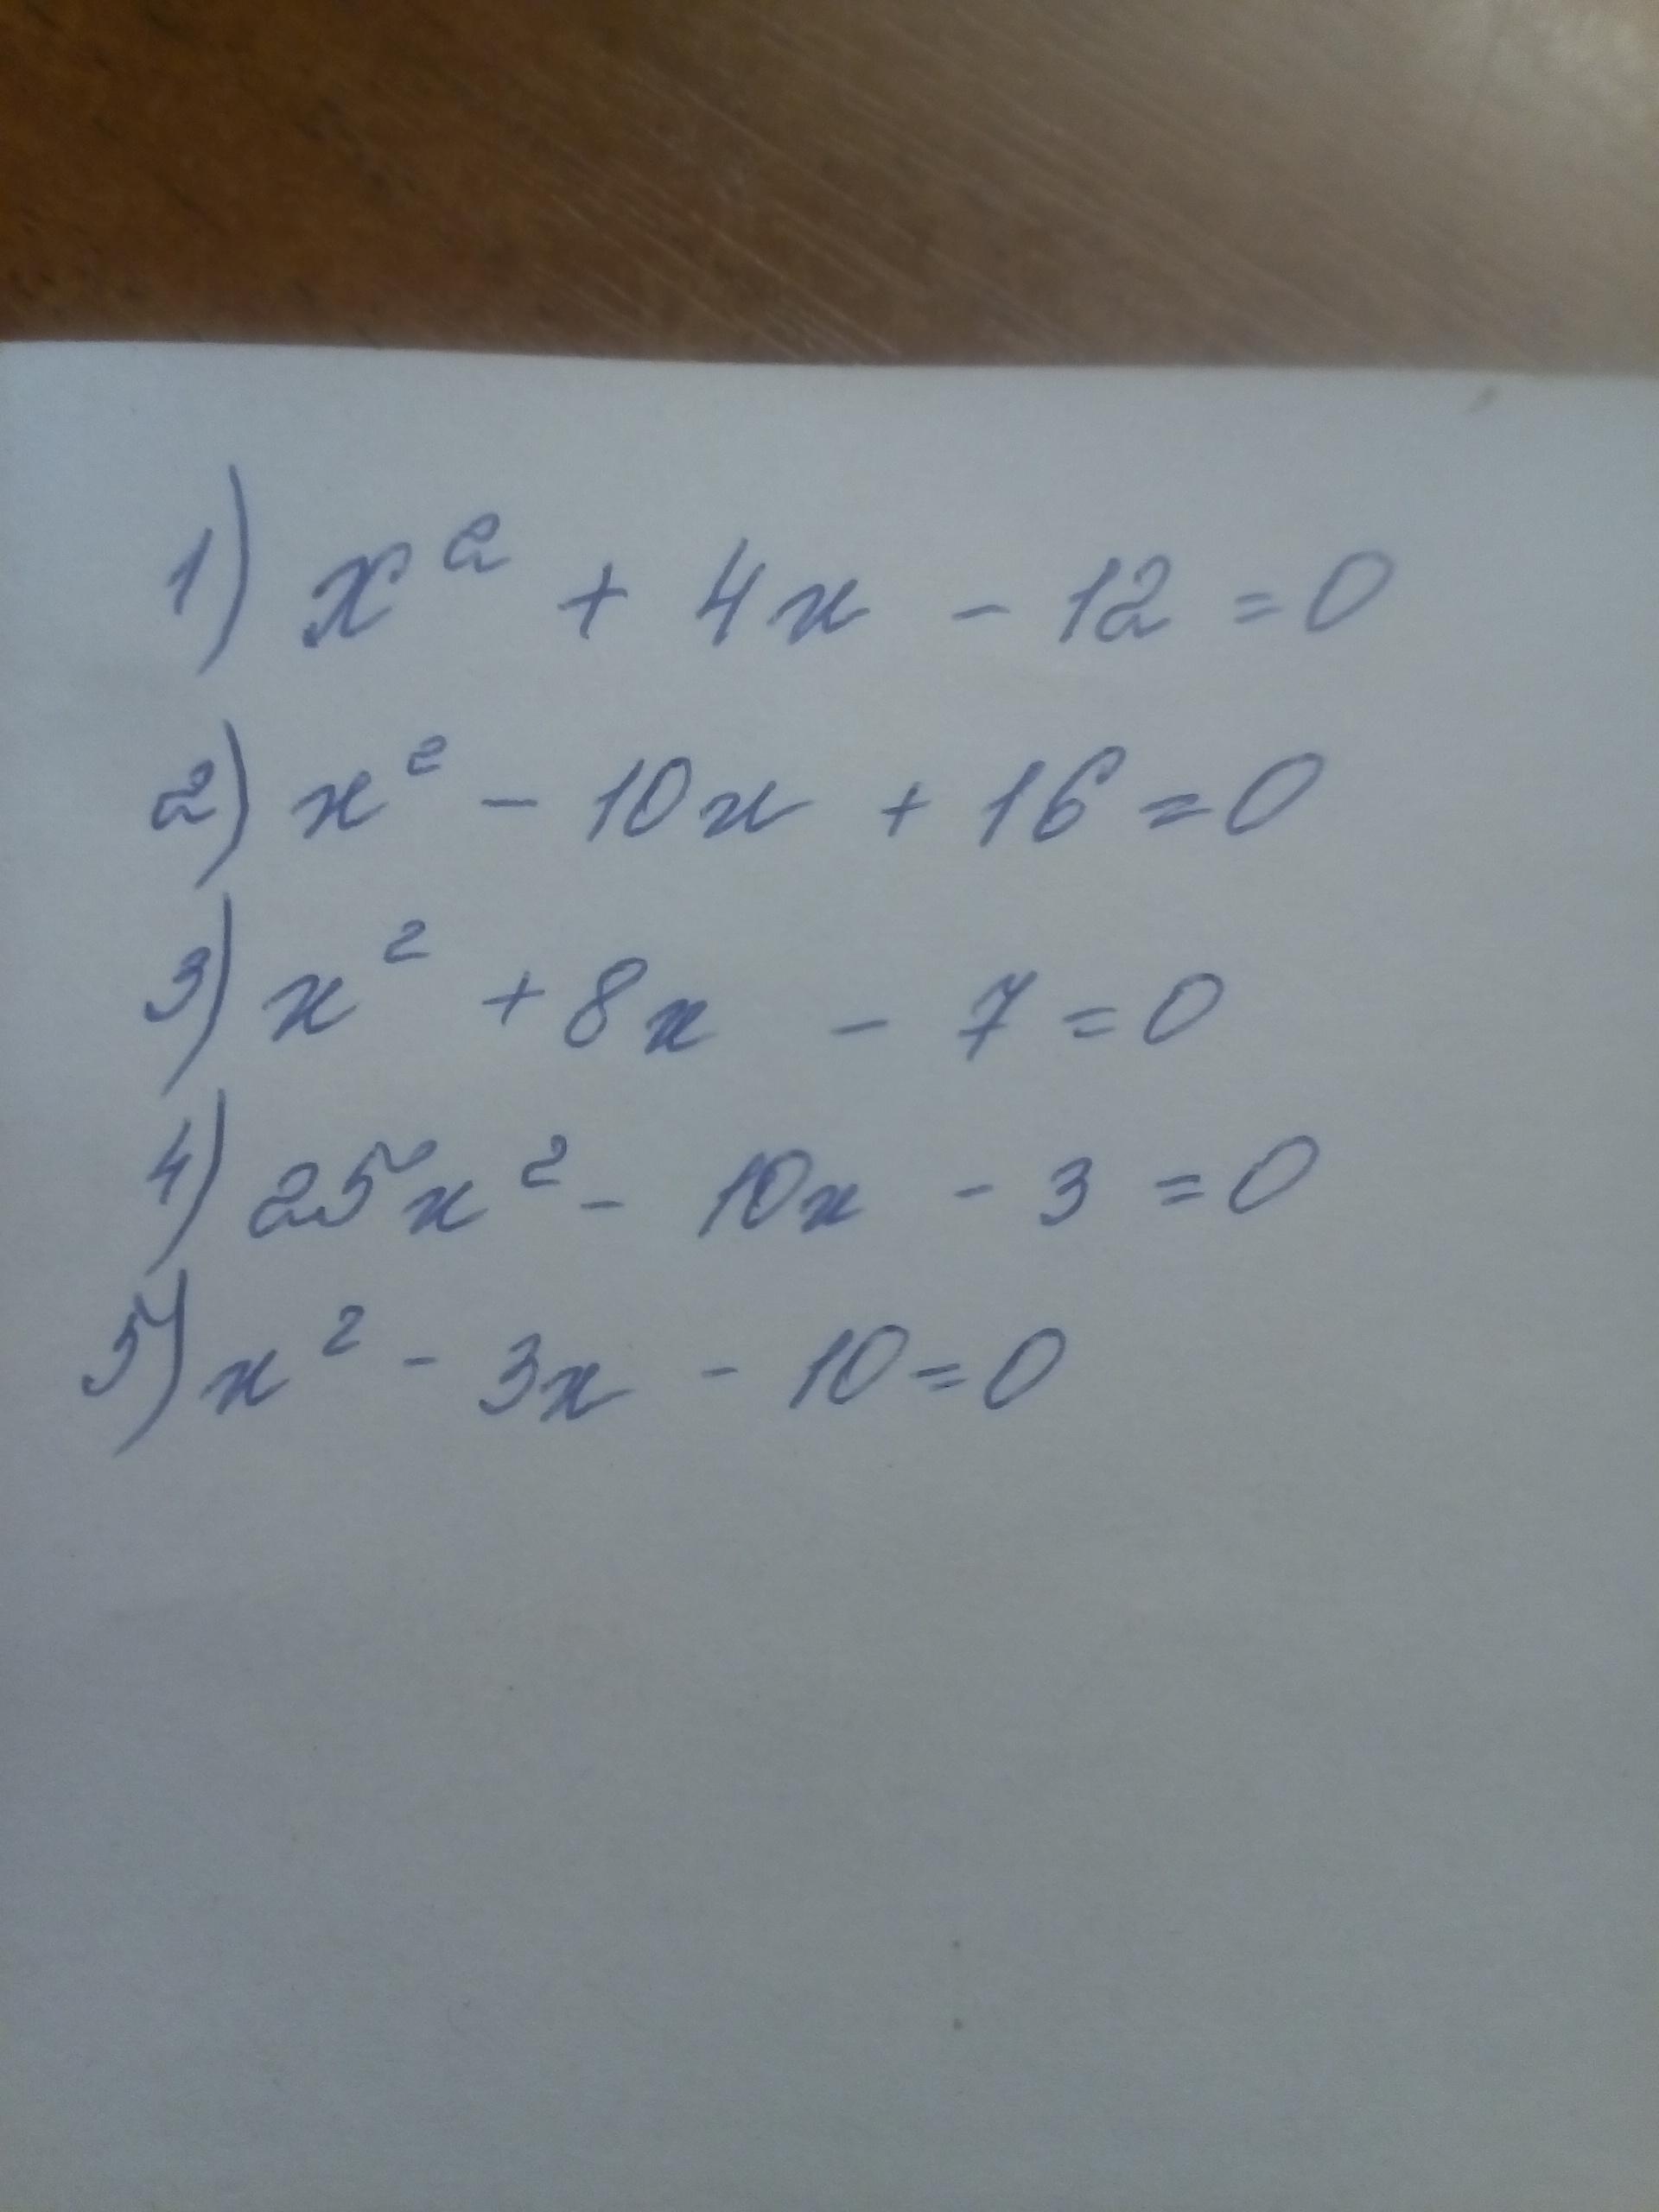 1) x² + 4x - 12 = 0
2) x² - 10x + 16 = 0
3) x² + 8x - 7 = 0
4) 25x² - 10x - 3 = 0
5) x² - 3x - 10 = 0